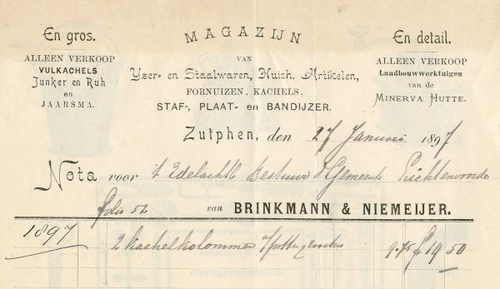 En gros.
MAGAZIJN
En detail.
ALLEEN VERKOOP
VULKACHELS
Junker en Ruh
en
JAARSMA.
VAN
Yzer- en Staalwaren, Huish. Artikelen,
FORNUIZEN, KACHELS,
STAF-, PLAAT- en BANDIJZER.
ALLEEN VERKOOP
Landbouwwerktuigen
van de
MINERVA HUTTE.
Zutphen, den 27 Januari 1897
Nota voor 't Edelachtb Bestuur d Gemeente Lichtenvoorde
folio 52 van BRINKMANN & NIEMEIJER.
1897 2 kachelkolommen 9.75 f 19 50